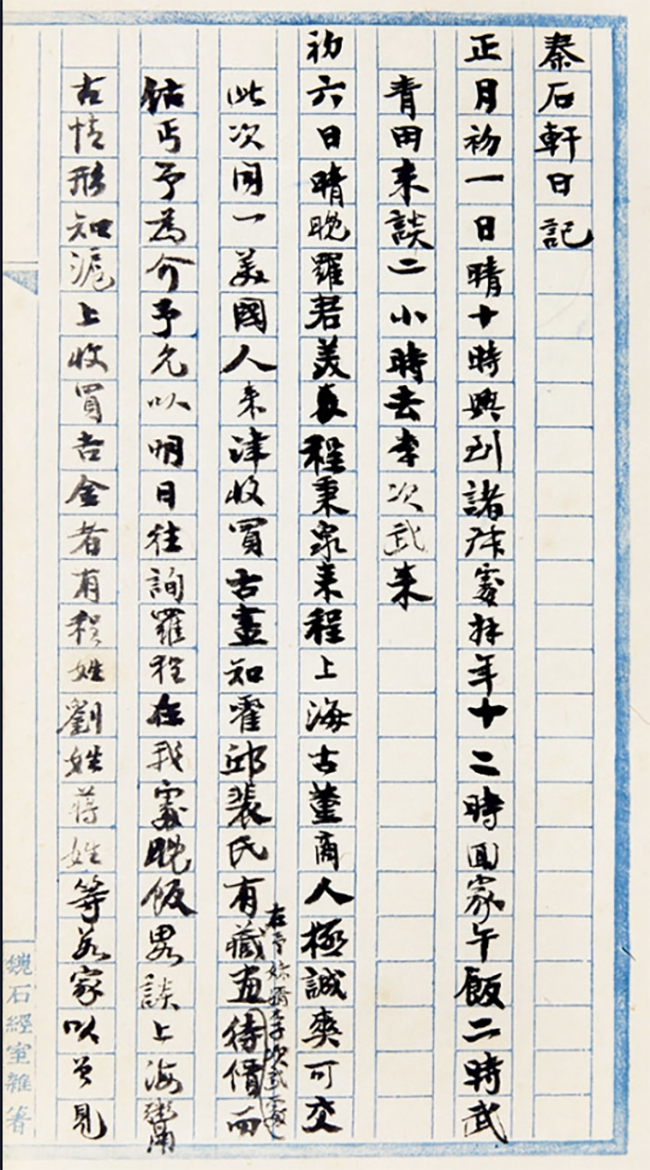 秦石軒日記
正月初一日晴十時興到諸處拜年十二時回家午飯二時武
青田来談二小時去李次武来
初六日晴晚羅君美程秉泉来程上海古董商人極誠爽可交
此次同一美國人来津收買古畫知霍邱裴氏有藏畫待價而
在其婿李次武處
沽丐予為介予允以明日往詢羅程在我處晚飯畧談上海鬻
古情形知滬上收買吉金者有程姓劉姓蔣姓等數家以曾見
魏石經室雜著